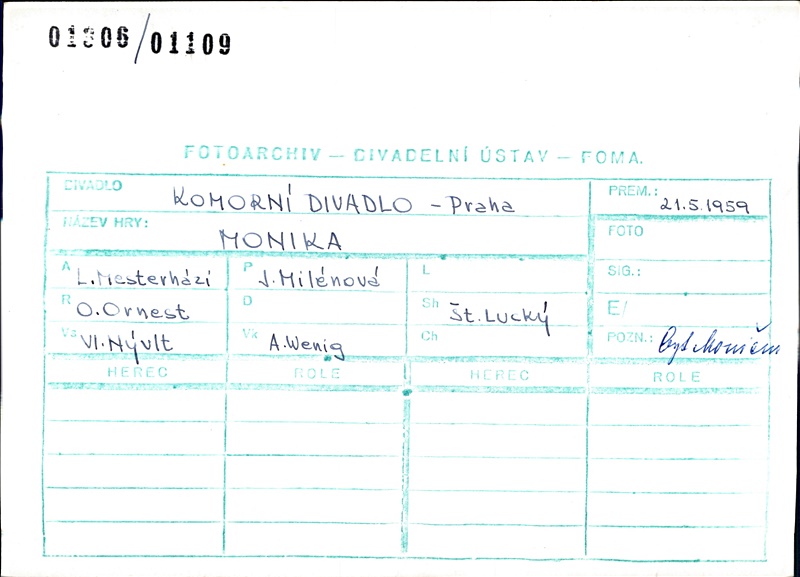 01306/01109
FOTOARCHIV — DIVADELNÍ ÚSTAV — FOMA.
DIVADLO KOMORNÍ DIVADLO - Praha
PREM.: 21.5.1959
NÁZEV HRY: MONIKA
FOTO
A L. Mesterházi P J. Milénová L
SIG.:
R O. Ornest D Sh Št. Lucký
E/
Va Vl. Nývlt Vk A. Wenig Ch
POZN.: byt Moničin
HEREC ROLE HEREC ROLE